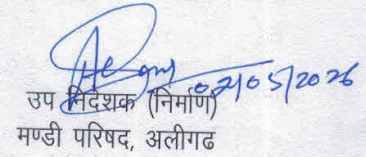 02/05/2026
उप निदेशक (निर्माण)
मण्डी परिषद, अलीगढ